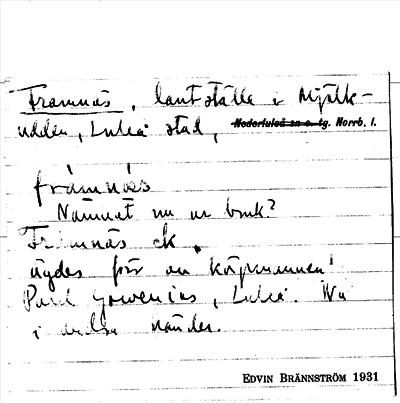 Framnäs, lantställe i Mjölk-
udden, Luleå stad, Nederluleå sn o. tg. Norrb. l.
främnäs
Namnet nu ur bruk?
Framnäs ek.
ägdes förr av köpmannen
Paul Govenius, Luleå. Nu
i andra händer.
EDVIN BRÄNNSTRÖM 1931